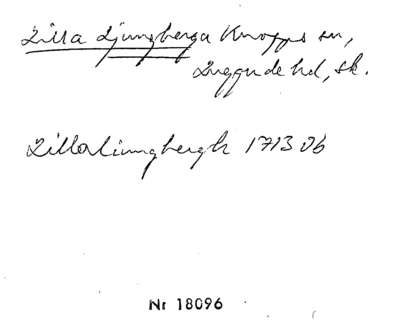 Lilla Ljungberga Knopps sn,
Luggude hd, sk.
Lillaliungbergh 1713 Ob
Nr 18096